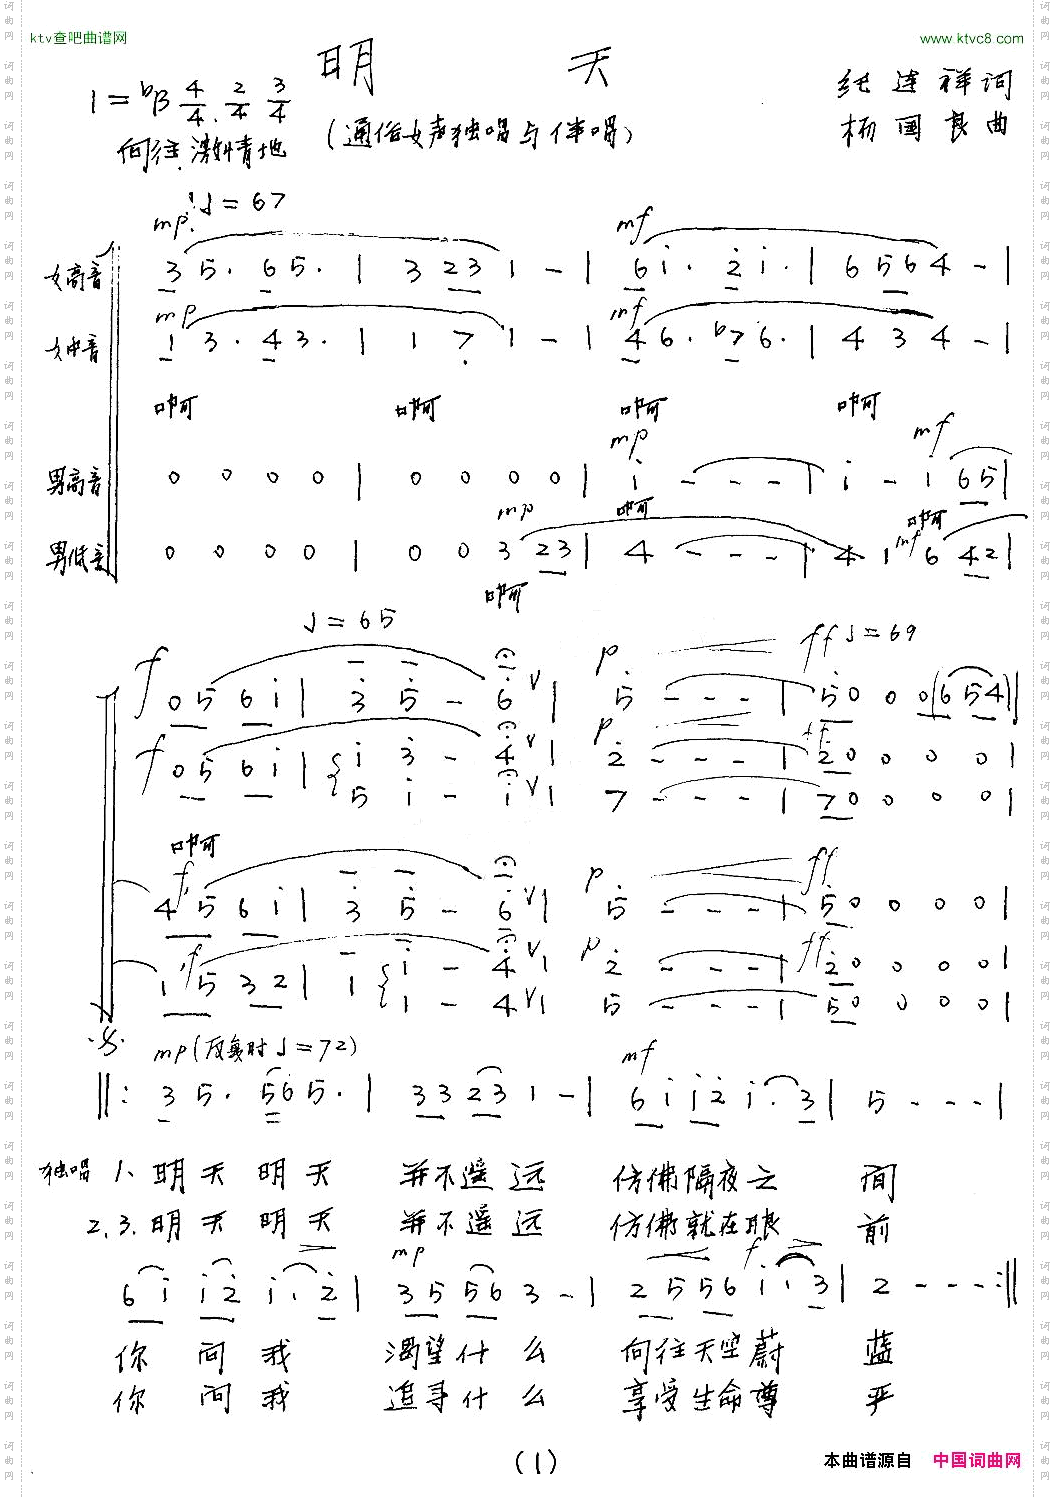 ktv查吧曲谱网
www.ktvc8.com
明 天
1=♭B 4/4 2/4 3/4
(通俗女声独唱与伴唱)
纪连祥词
杨国良曲
向往、激情地
♩=67
mp mf
女高音 3 5. 6 5. | 3 23 1 - | 6 i. 2 i. | 6 56 4 - |
mp mf
女中音 1 3. 4 3. | 1 7 1 - | 4 6. ♭7 6. | 4 3 4 - |
啊 啊 啊 啊
mp mf
男高音 0 0 0 0 | 0 0 0 0 | i - - - | i - i 65 |
mp 啊 啊 mf
男低音 0 0 0 0 | 0 0 3 23 | 4 - - - | 4 1 6 42 |
啊
♩=65
f p ff ♩=69
05 6i | 3 5 - 6 V | 5 - - - | 50 0 0 0(6 54) |
f p ff
05 6i | i 3 - 4 V | 2 - - - | 20 0 0 0 |
5 i - i V | 7 - - - | 70 0 0 0 |
啊
f p ff
45 6i | 3 5 - 6 V | 5 - - - | 50 0 0 0 |
f p ff
15 32 | 1 i - 4 V | 2 - - - | 20 0 0 0 |
1 - 4 V | 5 - - - | 50 0 0 0 |
mp (反复时♩=72) mf
‖: 3 5. 56 5. | 33 23 1 - | 6i i2 i. 3 | 5 - - - |
独唱 1、明天 明天 并不遥远 仿佛隔夜之间
2,3.明天 明天 并不遥远 仿佛就在眼前
mp f
6i i2 i. 2 | 35 56 3 - | 25 56 i. 3 | 2 - - - :‖
你问我 渴望什么 向往天空蔚蓝
你问我 追寻什么 享受生命尊严
(1)
本曲谱源自 中国词曲网